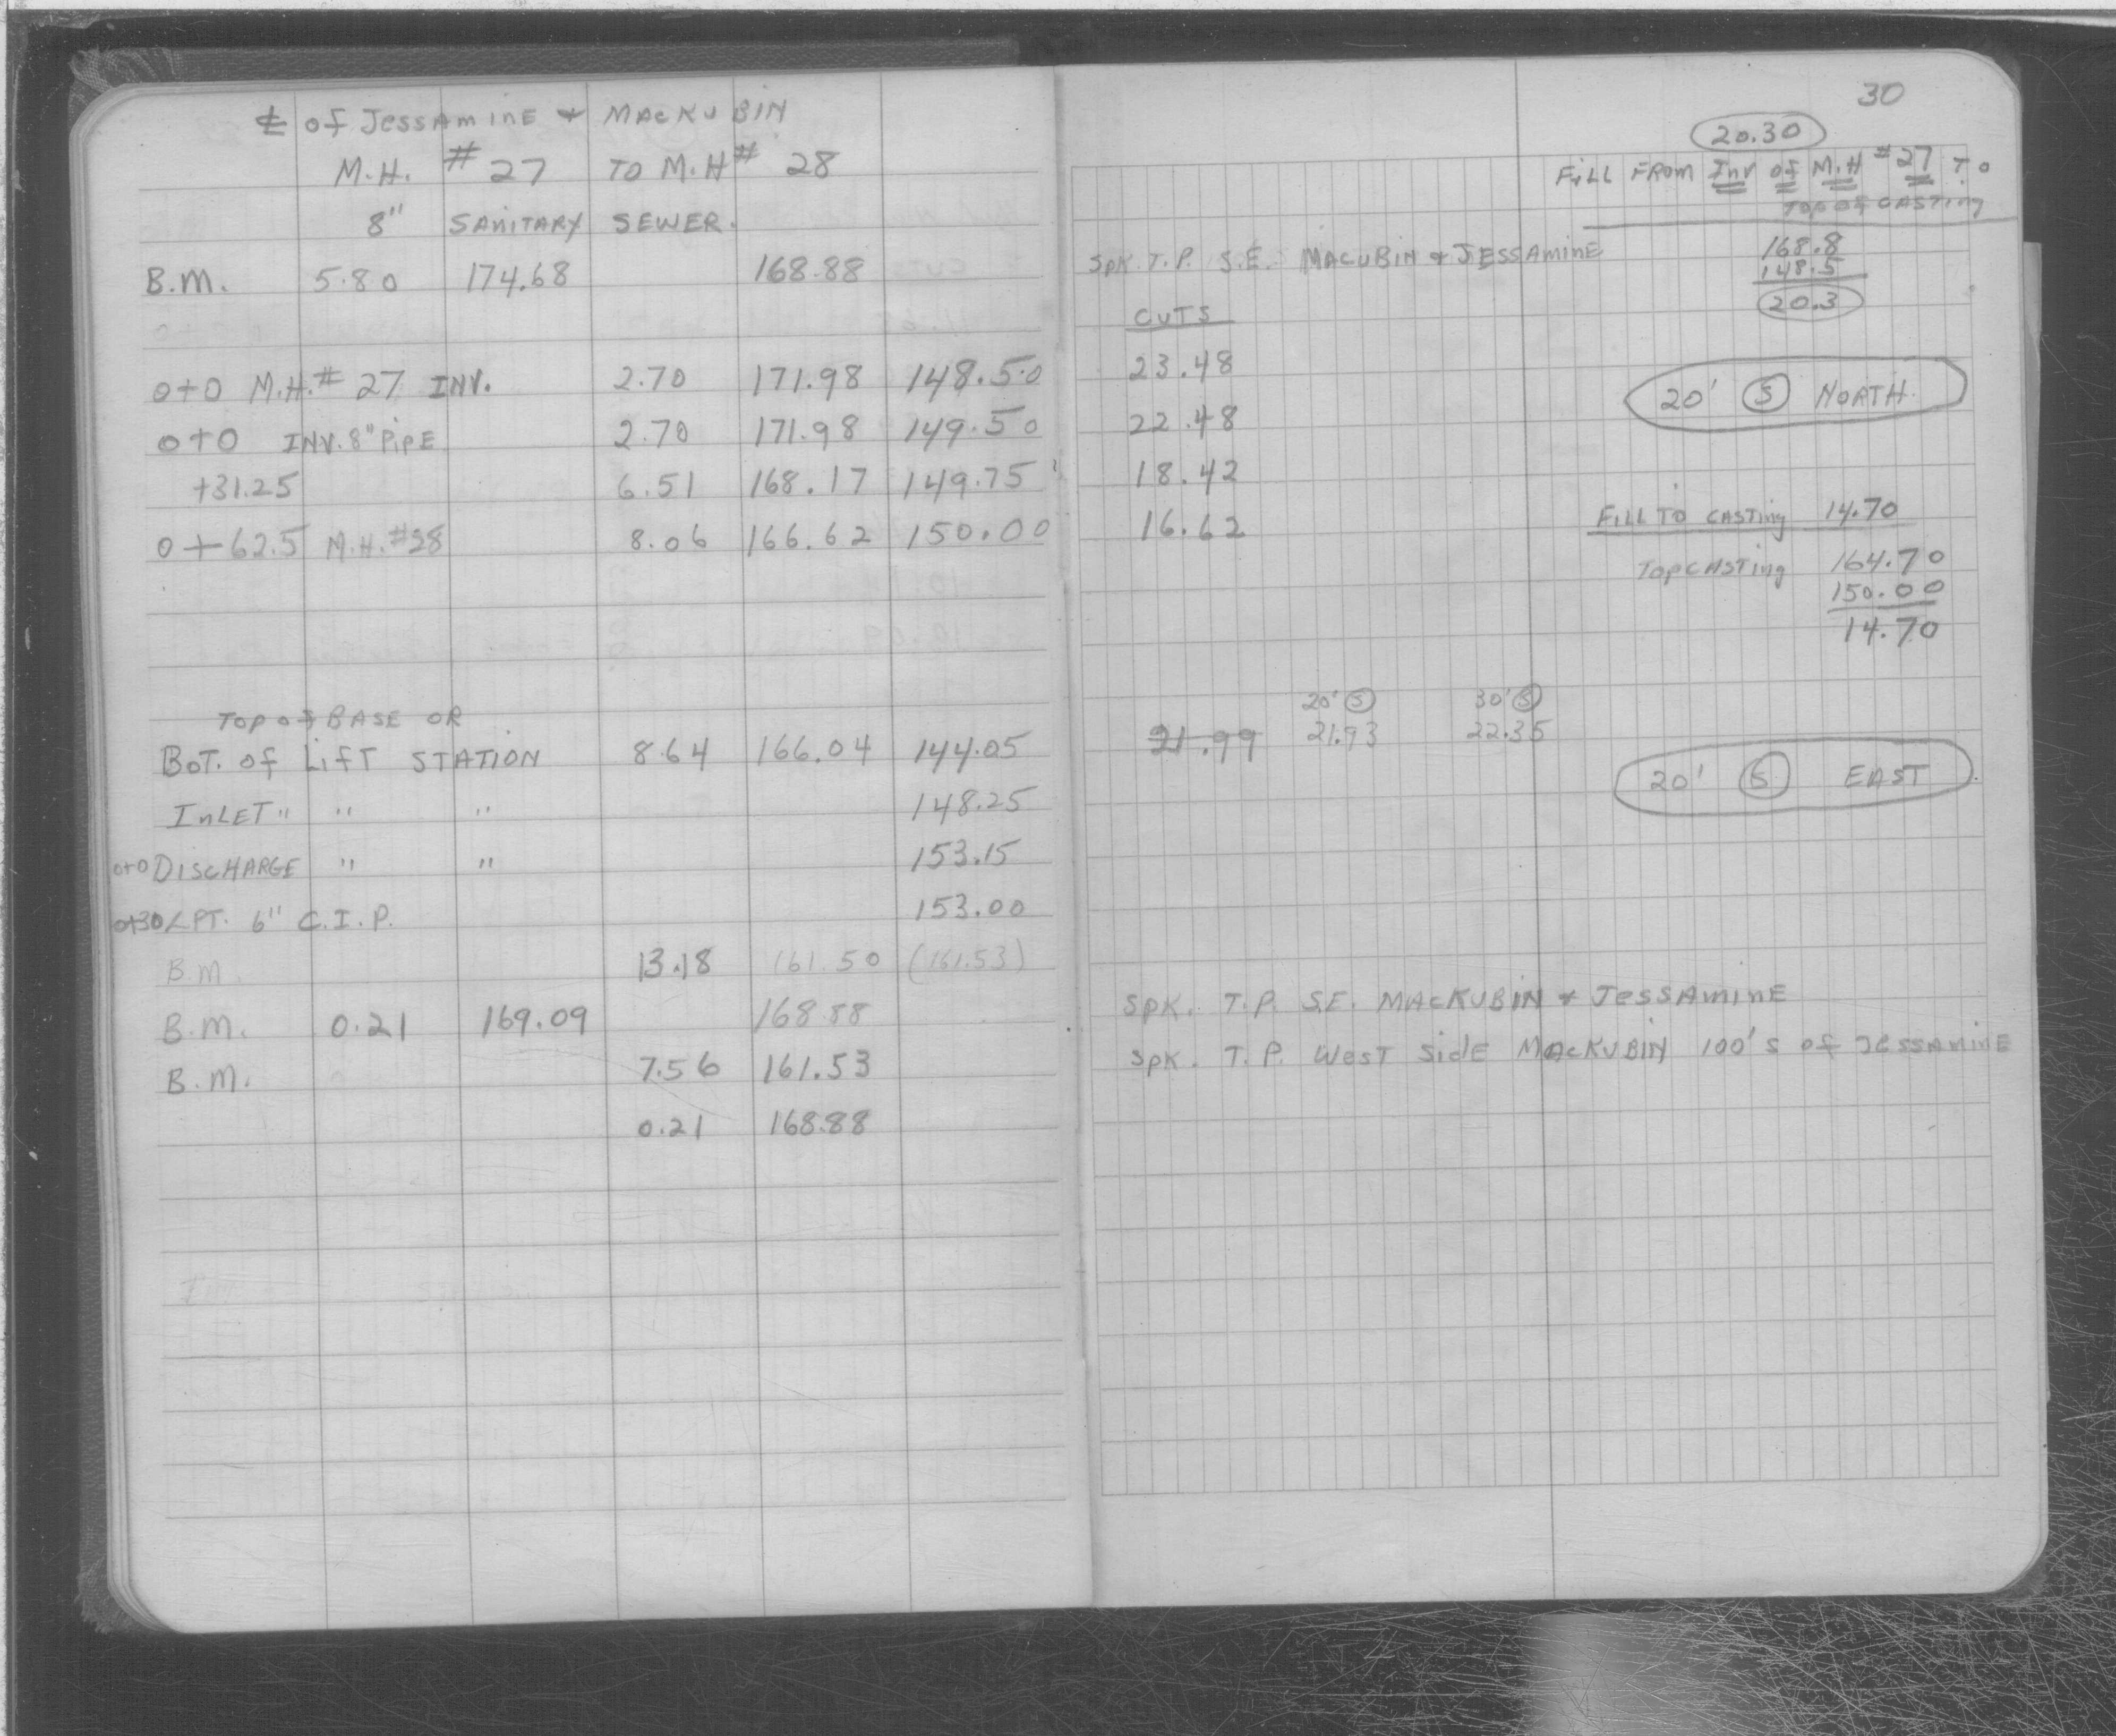 ℄ of Jessamine + MACKUBIN
M.H. #27 TO M.H# 28
8" SANITARY SEWER.
B.M. 5.80 174.68 168.88
0+0 M.H.# 27 INV. 2.70 171.98 148.50
0+0 INV. 8" PIPE 2.70 171.98 149.50
+31.25 6.51 168.17 149.75
0+62.5 M.H.#28 8.06 166.62 150.00
Top of BASE OR
BOT. of Lift STATION 8.64 166.04 144.05
INLET " " " 148.25
0+0 DISCHARGE " " 153.15
0+30 LPT. 6" C.I.P. 153.00
B.M. 13.18 161.50 (161.53)
B.M. 0.21 169.09 168.88
B.M. 7.56 161.53
0.21 168.88
30
20.30
FILL FROM Inv of M.H #27 To
Top of CASTing
Spk. T.P. S.E. MACUBIN + JESSAMINE
168.8
148.5
20.3
CUTS
23.48
22.48
18.42
16.62
20' S NORTH.
FILL TO CASTing 14.70
TOP CASTing 164.70
150.00
14.70
20' S 30' S
21.99 21.93 22.35
20' S EAST
Spk. T.P. S.E. MACKUBIN + JESSAMINE
Spk. T.P. West Side MACKUBIN 100' S of JESSAMINE